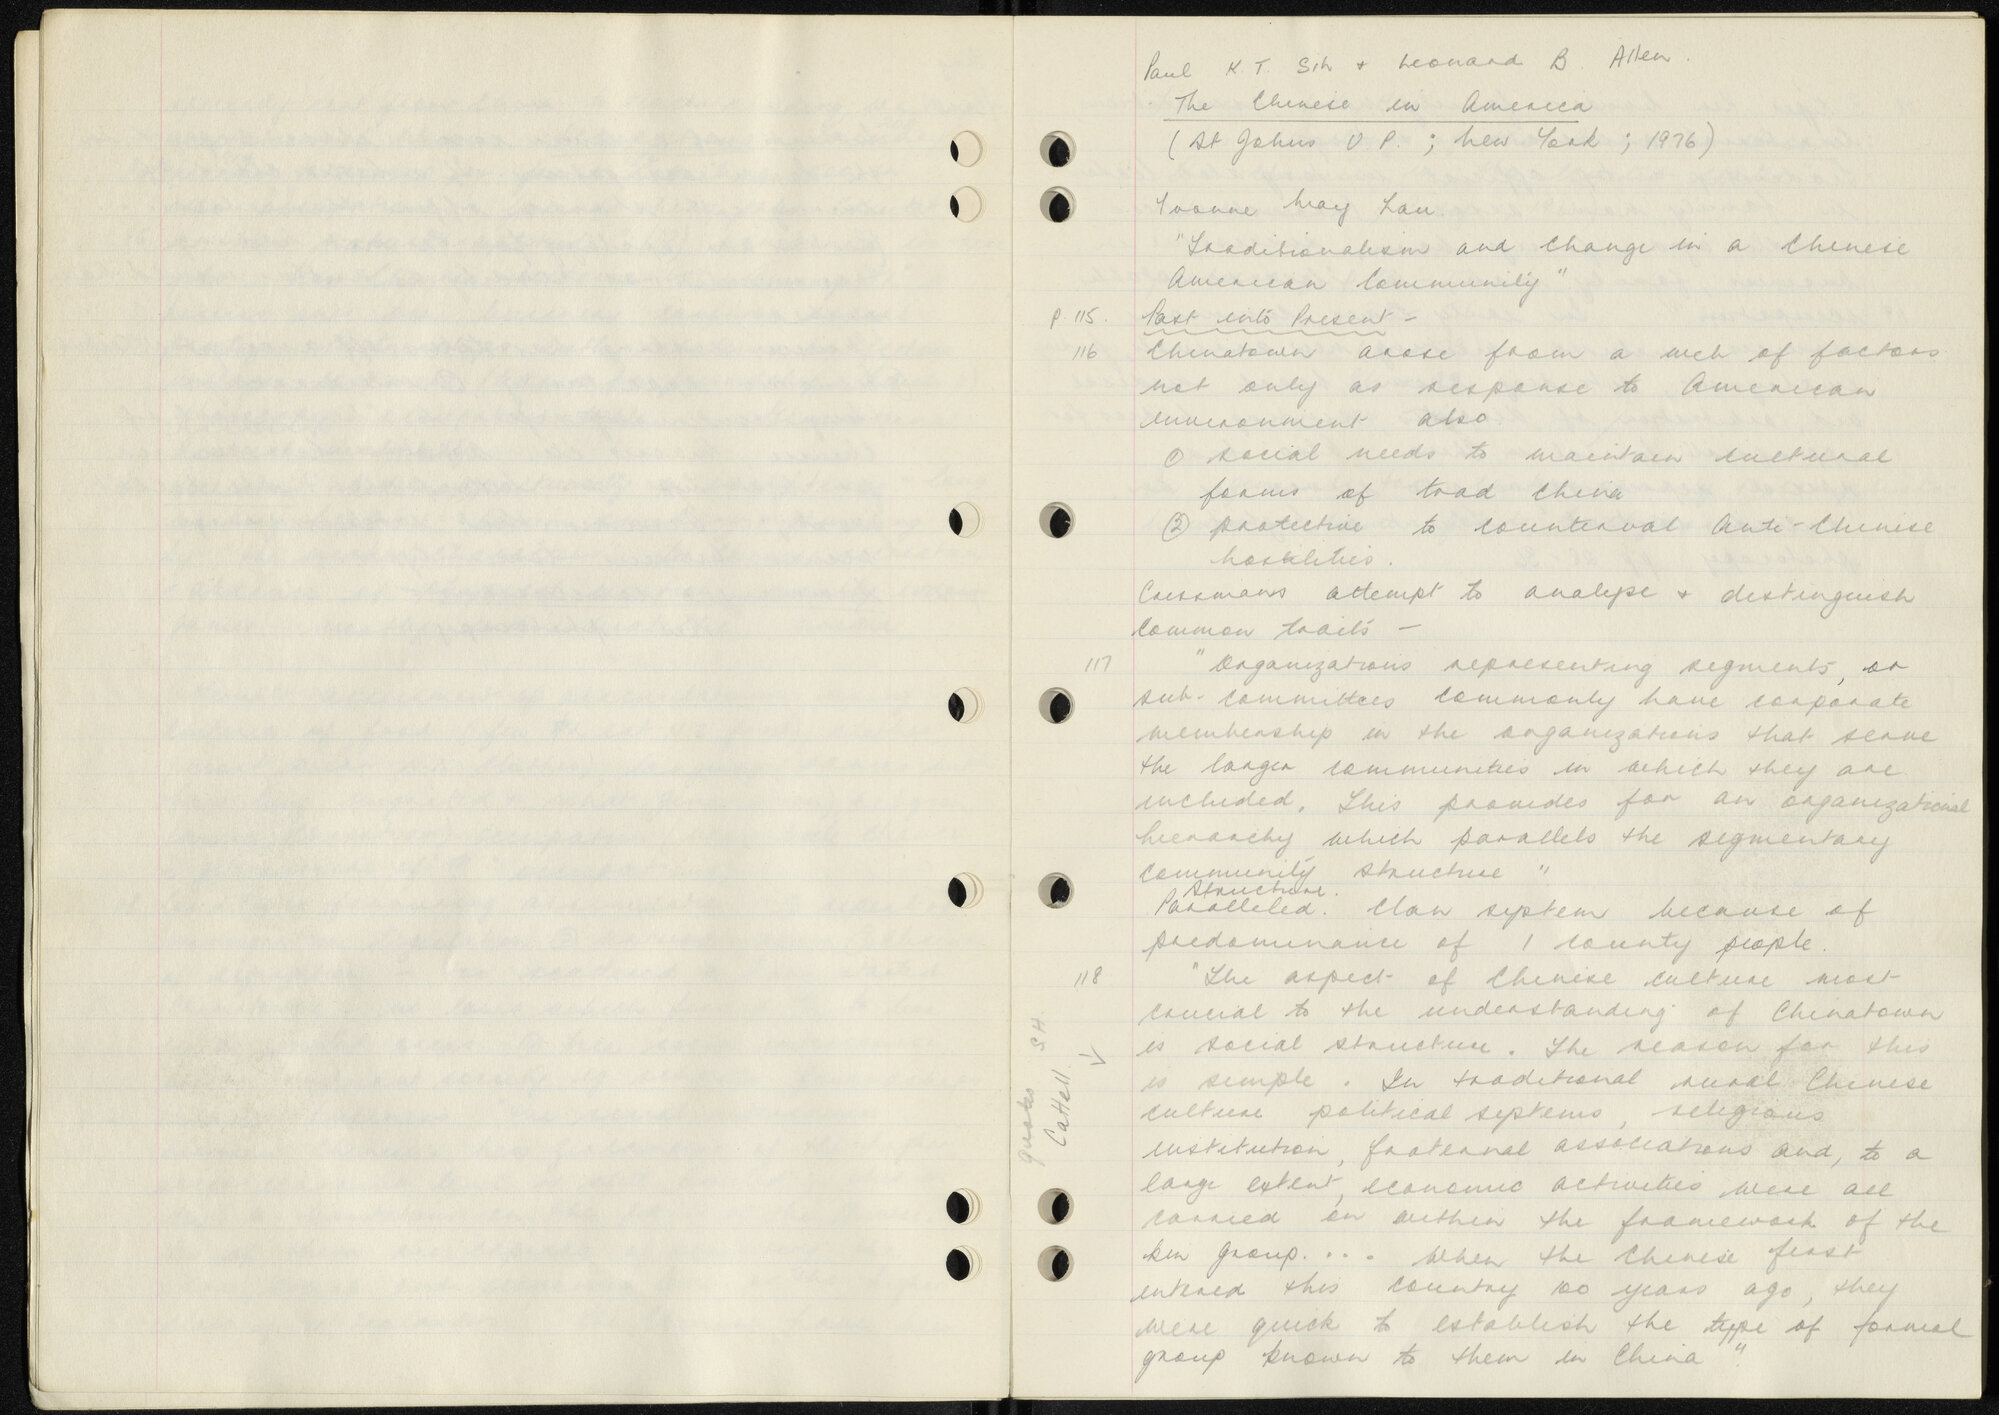 Paul K.T. Sih + Leonard B Allen.
The Chinese in America
(St Johns U P. ; New York ; 1976)
Yvonne May Lau.
"Traditionalism and Change in a Chinese
American Community"
p. 115. Past into Present -
116 Chinatown arose from a web of factors
not only as response to American
environment also
① social needs to maintain cultural
forms of trad China
② protective to counteract Anti-Chinese
hostilities.
Crissmans attempt to analyse + distinguish
common traits -
117 "Organizations representing segments, or
sub-committees commonly have corporate
membership in the organizations that serve
the larger communities in which they are
included. This provides for an organizational
hierarchy which parallels the segmentary
community structure"
Structure.
Paralleled. Clan system because of
predominance of 1 county people.
118 "The aspect of Chinese culture most
crucial to the understanding of Chinatown
is social structure. The reason for this
is simple. In traditional rural Chinese
culture political systems, religious
institution, fraternal associations and, to a
large extent, economic activities were all
carried on within the framework of the
kin group. ... When the Chinese first
entered this country 100 years ago, they
were quick to establish the type of formal
group known to them in China".
quotes S.H.
Cattell.